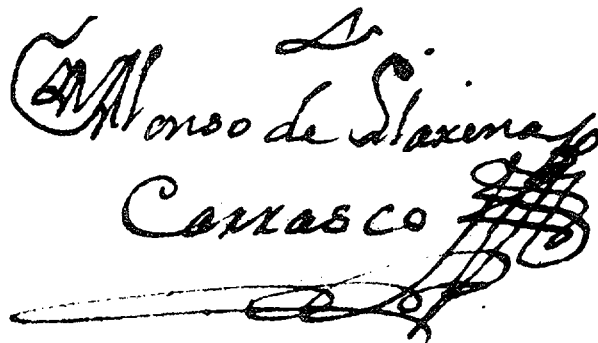 Alonso de Llaxena
Carrasco